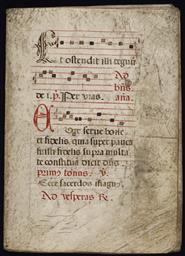 Et ostendit illi regnū
Ad
de i. p. Per vias. ana.
Euge serve bone
et fidelis, quia super pauca
fuisti fidelis supra multa
te constituā dicit dn̄s.
primus tonus. v.
Ecce sacerdos magn
Ad vesperas R.